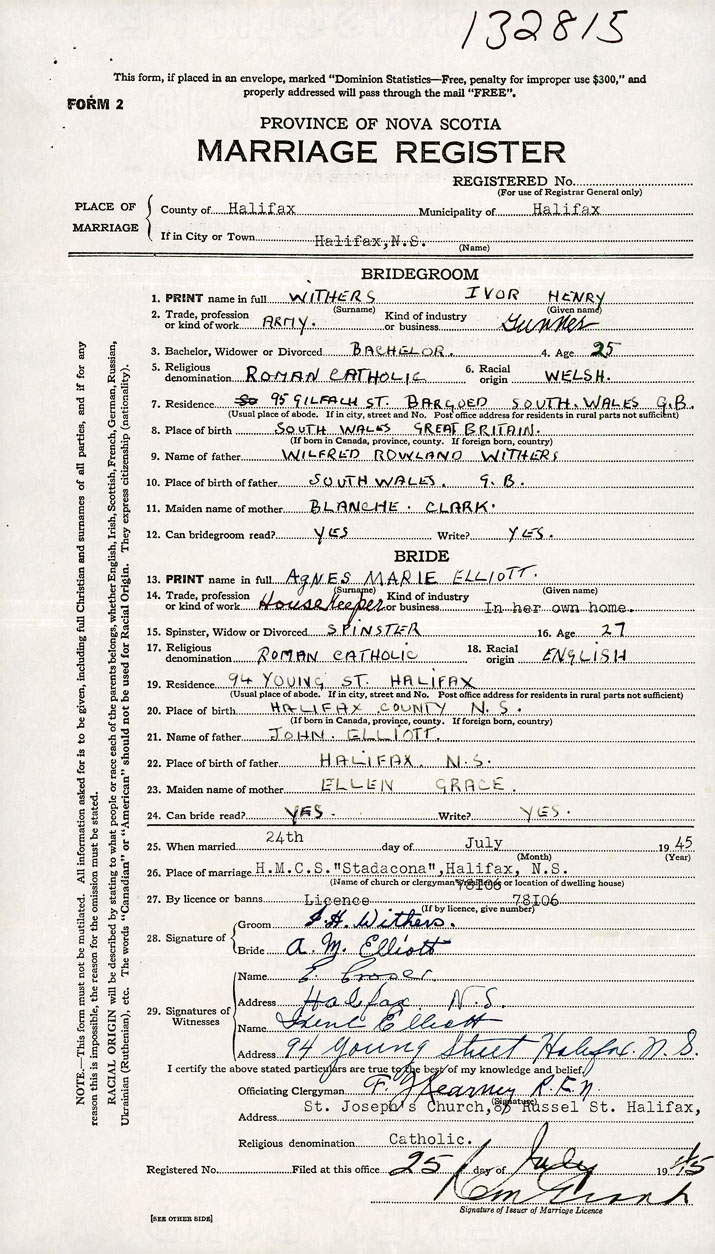 132815
This form, if placed in an envelope, marked "Dominion Statistics—Free, penalty for improper use $300," and
properly addressed will pass through the mail "FREE".
FORM 2
PROVINCE OF NOVA SCOTIA
MARRIAGE REGISTER
REGISTERED No.
(For use of Registrar General only)
PLACE OF MARRIAGE
County of Halifax Municipality of Halifax
If in City or Town Halifax, N.S.
(Name)
BRIDEGROOM
1. PRINT name in full WITHERS IVOR HENRY
(Surname) (Given name)
2. Trade, profession or kind of work ARMY. Kind of industry or business Gunner
3. Bachelor, Widower or Divorced BACHELOR. 4. Age 25
5. Religious denomination ROMAN CATHOLIC 6. Racial origin WELSH.
7. Residence 95 GILFACH ST. BARGOED SOUTH. WALES G.B.
(Usual place of abode. If in city, street and No. Post office address for residents in rural parts not sufficient)
8. Place of birth SOUTH WALES GREAT BRITAIN.
(If born in Canada, province, county. If foreign born, country)
9. Name of father WILFRED ROWLAND WITHERS
10. Place of birth of father SOUTH WALES. G.B.
11. Maiden name of mother BLANCHE. CLARK.
12. Can bridegroom read? YES Write? YES.
BRIDE
13. PRINT name in full AGNES MARIE ELLIOTT.
(Surname) (Given name)
14. Trade, profession or kind of work Housekeeper Kind of industry or business In her own home.
15. Spinster, Widow or Divorced SPINSTER 16. Age 27
17. Religious denomination ROMAN CATHOLIC 18. Racial origin ENGLISH
19. Residence 94 YOUNG ST. HALIFAX
(Usual place of abode. If in city, street and No. Post office address for residents in rural parts not sufficient)
20. Place of birth HALIFAX COUNTY N.S.
(If born in Canada, province, county. If foreign born, country)
21. Name of father JOHN. ELLIOTT.
22. Place of birth of father HALIFAX. N.S.
23. Maiden name of mother ELLEN GRACE.
24. Can bride read? YES. Write? YES.
25. When married 24th day of July 1945
(Month) (Year)
26. Place of marriage H.M.C.S."Stadacona", Halifax, N.S.
(Name of church or clergyman's or location of dwelling house)
78106
27. By licence or banns Licence 78106
(If by licence, give number)
28. Signature of
Groom I.H. Withers.
Bride A. M. Elliott
29. Signatures of Witnesses
Name E.
Address Halifax N.S.
Name Irene Elliott
Address 94 Young Street Halifax. N.S.
I certify the above stated particulars are true to the best of my knowledge and belief.
Officiating Clergyman Kearney
(Signature)
Address St. Joseph's Church, Russel St. Halifax,
Religious denomination Catholic.
Registered No. Filed at this office 25 day of July 1945
Signature of Issuer of Marriage Licence
[SEE OTHER SIDE]
NOTE.—This form must not be mutilated. All information asked for is to be given, including full Christian and surnames of all parties, and if for any
reason this is impossible, the reason for the omission must be stated.
RACIAL ORIGIN will be described by stating to what people or race each of the parents belongs, whether English, Irish, Scottish, French, German, Russian,
Ukrainian (Ruthenian), etc. The words "Canadian" or "American" should not be used for Racial Origin. They express citizenship (nationality).